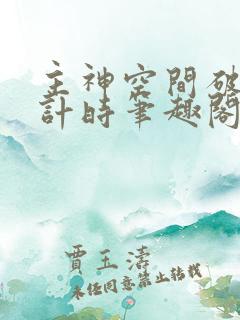 主神空間破
計時筆趣閣
賈玉濤
未經同意禁止轉載